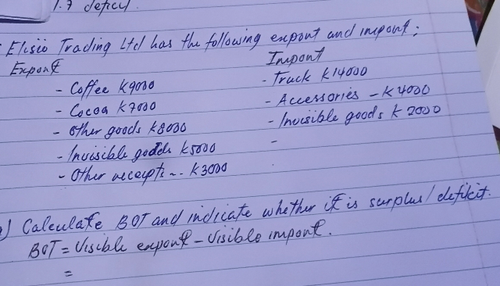 1.7 deficit
Elisio Trading Ltd has the following export and import;
Export
Import
- Coffee K9000
- Truck K14000
- Cocoa K7000
- Accessories - K4000
- Other goods K8000
- Invisible goods K2000
- Invisible goods K5000
-
- Other receipts.. K3000
a) Calculate BOT and indicate whether it is surplus/deficit.
BOT = Visible export - Visible import.
=